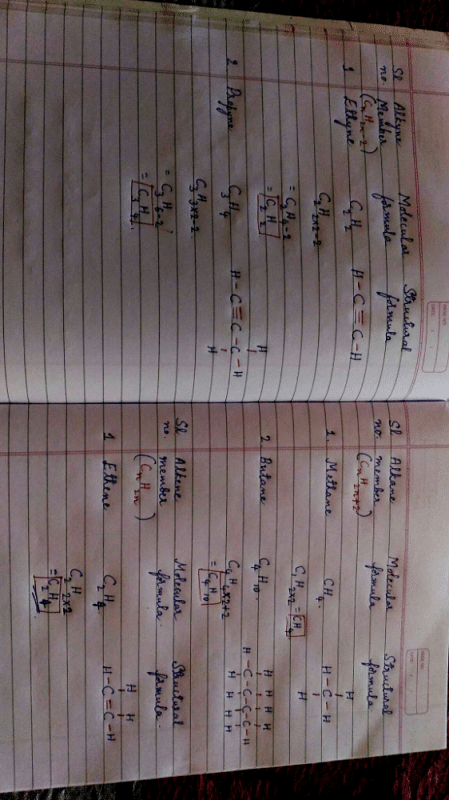 Sl no. Alkyne Member (CnH2n-2) Molecular formula Structural formula
1 Ethyne C2H2 H-C≡C-H
C2H2x2-2
= C2H4-2
= C2H2
2 Propyne C3H4 H-C≡C-C-H
H
H
C3H3x2-2
= C3H6-2
= C3H4
Sl no. Alkane member (CnH2n+2) Molecular formula Structural formula
1. Methane CH4
H
H-C-H
H
C1H2x2 = CH4
2 Butane C4H10
H H H H
H-C-C-C-C-H
H H H H
C4H4x2+2
= C4H10
Sl no. Alkene member (CnH2n) Molecular formula. Structural formula.
1 Ethene C2H4
H H
H-C=C-H
C2H2x2
= C2H4